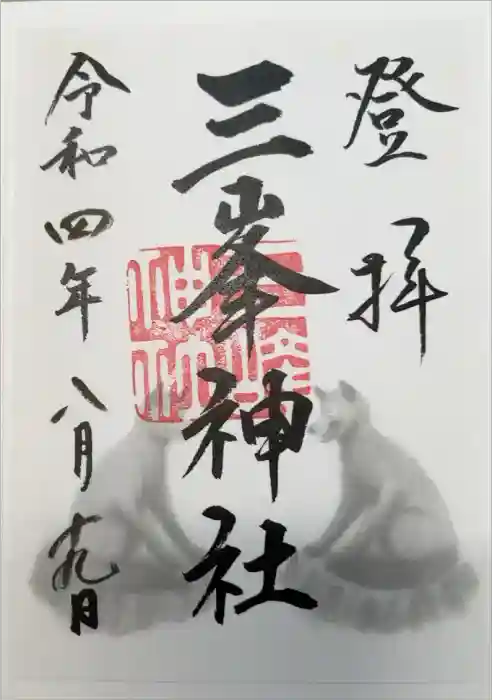 登拝
三峯神社
令和四年八月十九日
三峰
神社